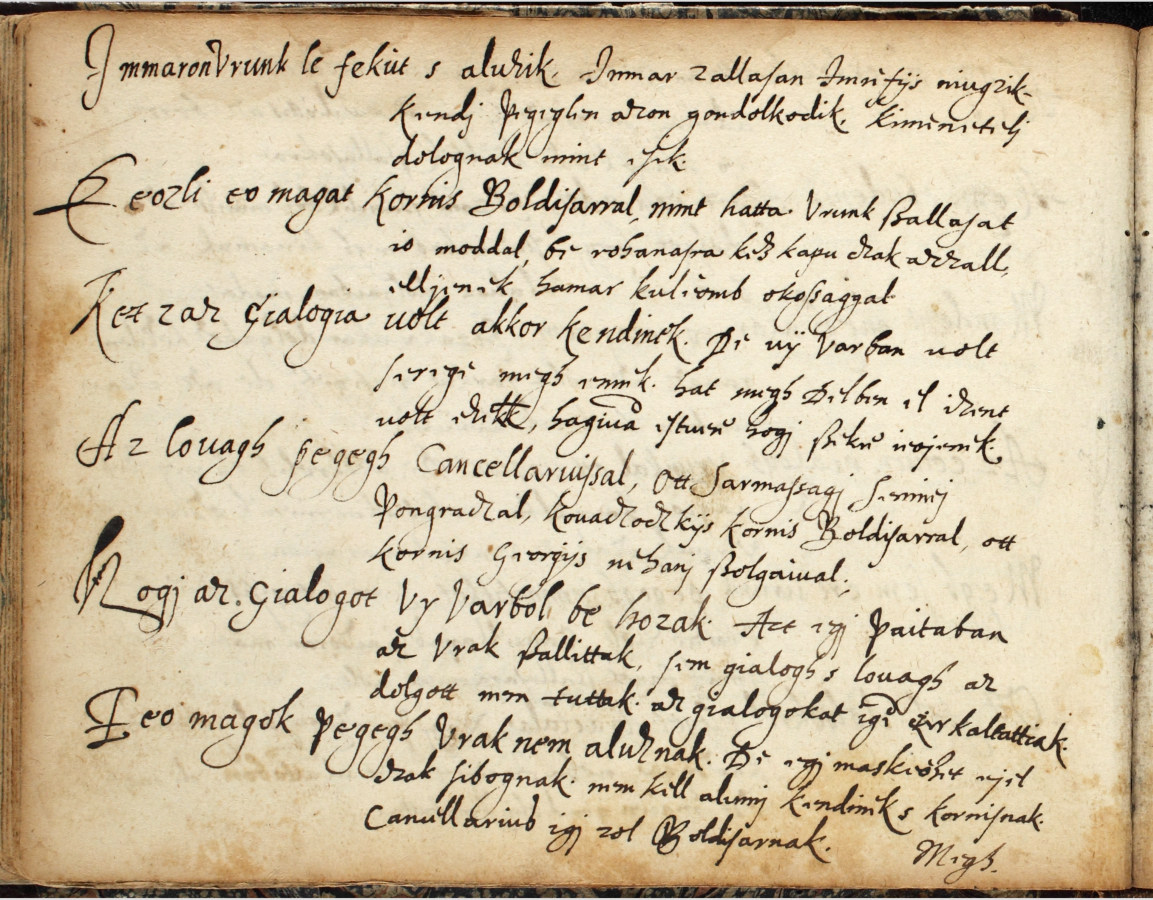 Immaron Vrunk le fekut s aluzik. Immar zallasan Imrefÿs niugzik
Kendj pegeglen azon gondolkodik. kimeneteli
dolognak mint esik.
Eozli eo magat Kornis Boldisarral, mint hatta Vrunk ßallasat
io moddal, be rohanasra keß kapu czak azzall,
elljenek hamar kuleomb okossaggal
Ket zaz Gialogia uolt akkor kendinek De uÿ Varban uolt
serege megh ennek. hat megh Delben el izent
uolt ezekk, hagiua estuere hogj ßekre ieojenek.
Az louagh pegegh Cancellariussal, Ott Sarmassagj
Pongraczal, Kouaczoczkÿs Kornis Boldisarral, ott
Kornis Georgÿs nehanj ßolgaiual.
Hogj az Gialogot Vy Varbol be hozak. Azt egj paitaban
az Vrak ßallittak, sem gialogh s louagh az
dolgott nem tuttak. az gialogokat igj
Feo magok pegegh Vrak nem aluznak. De egj ejel
czak sibognak. nem kell alunnj kendinek s kornisnak.
Cancellarius igj zol Boldisarnak.
Megh.